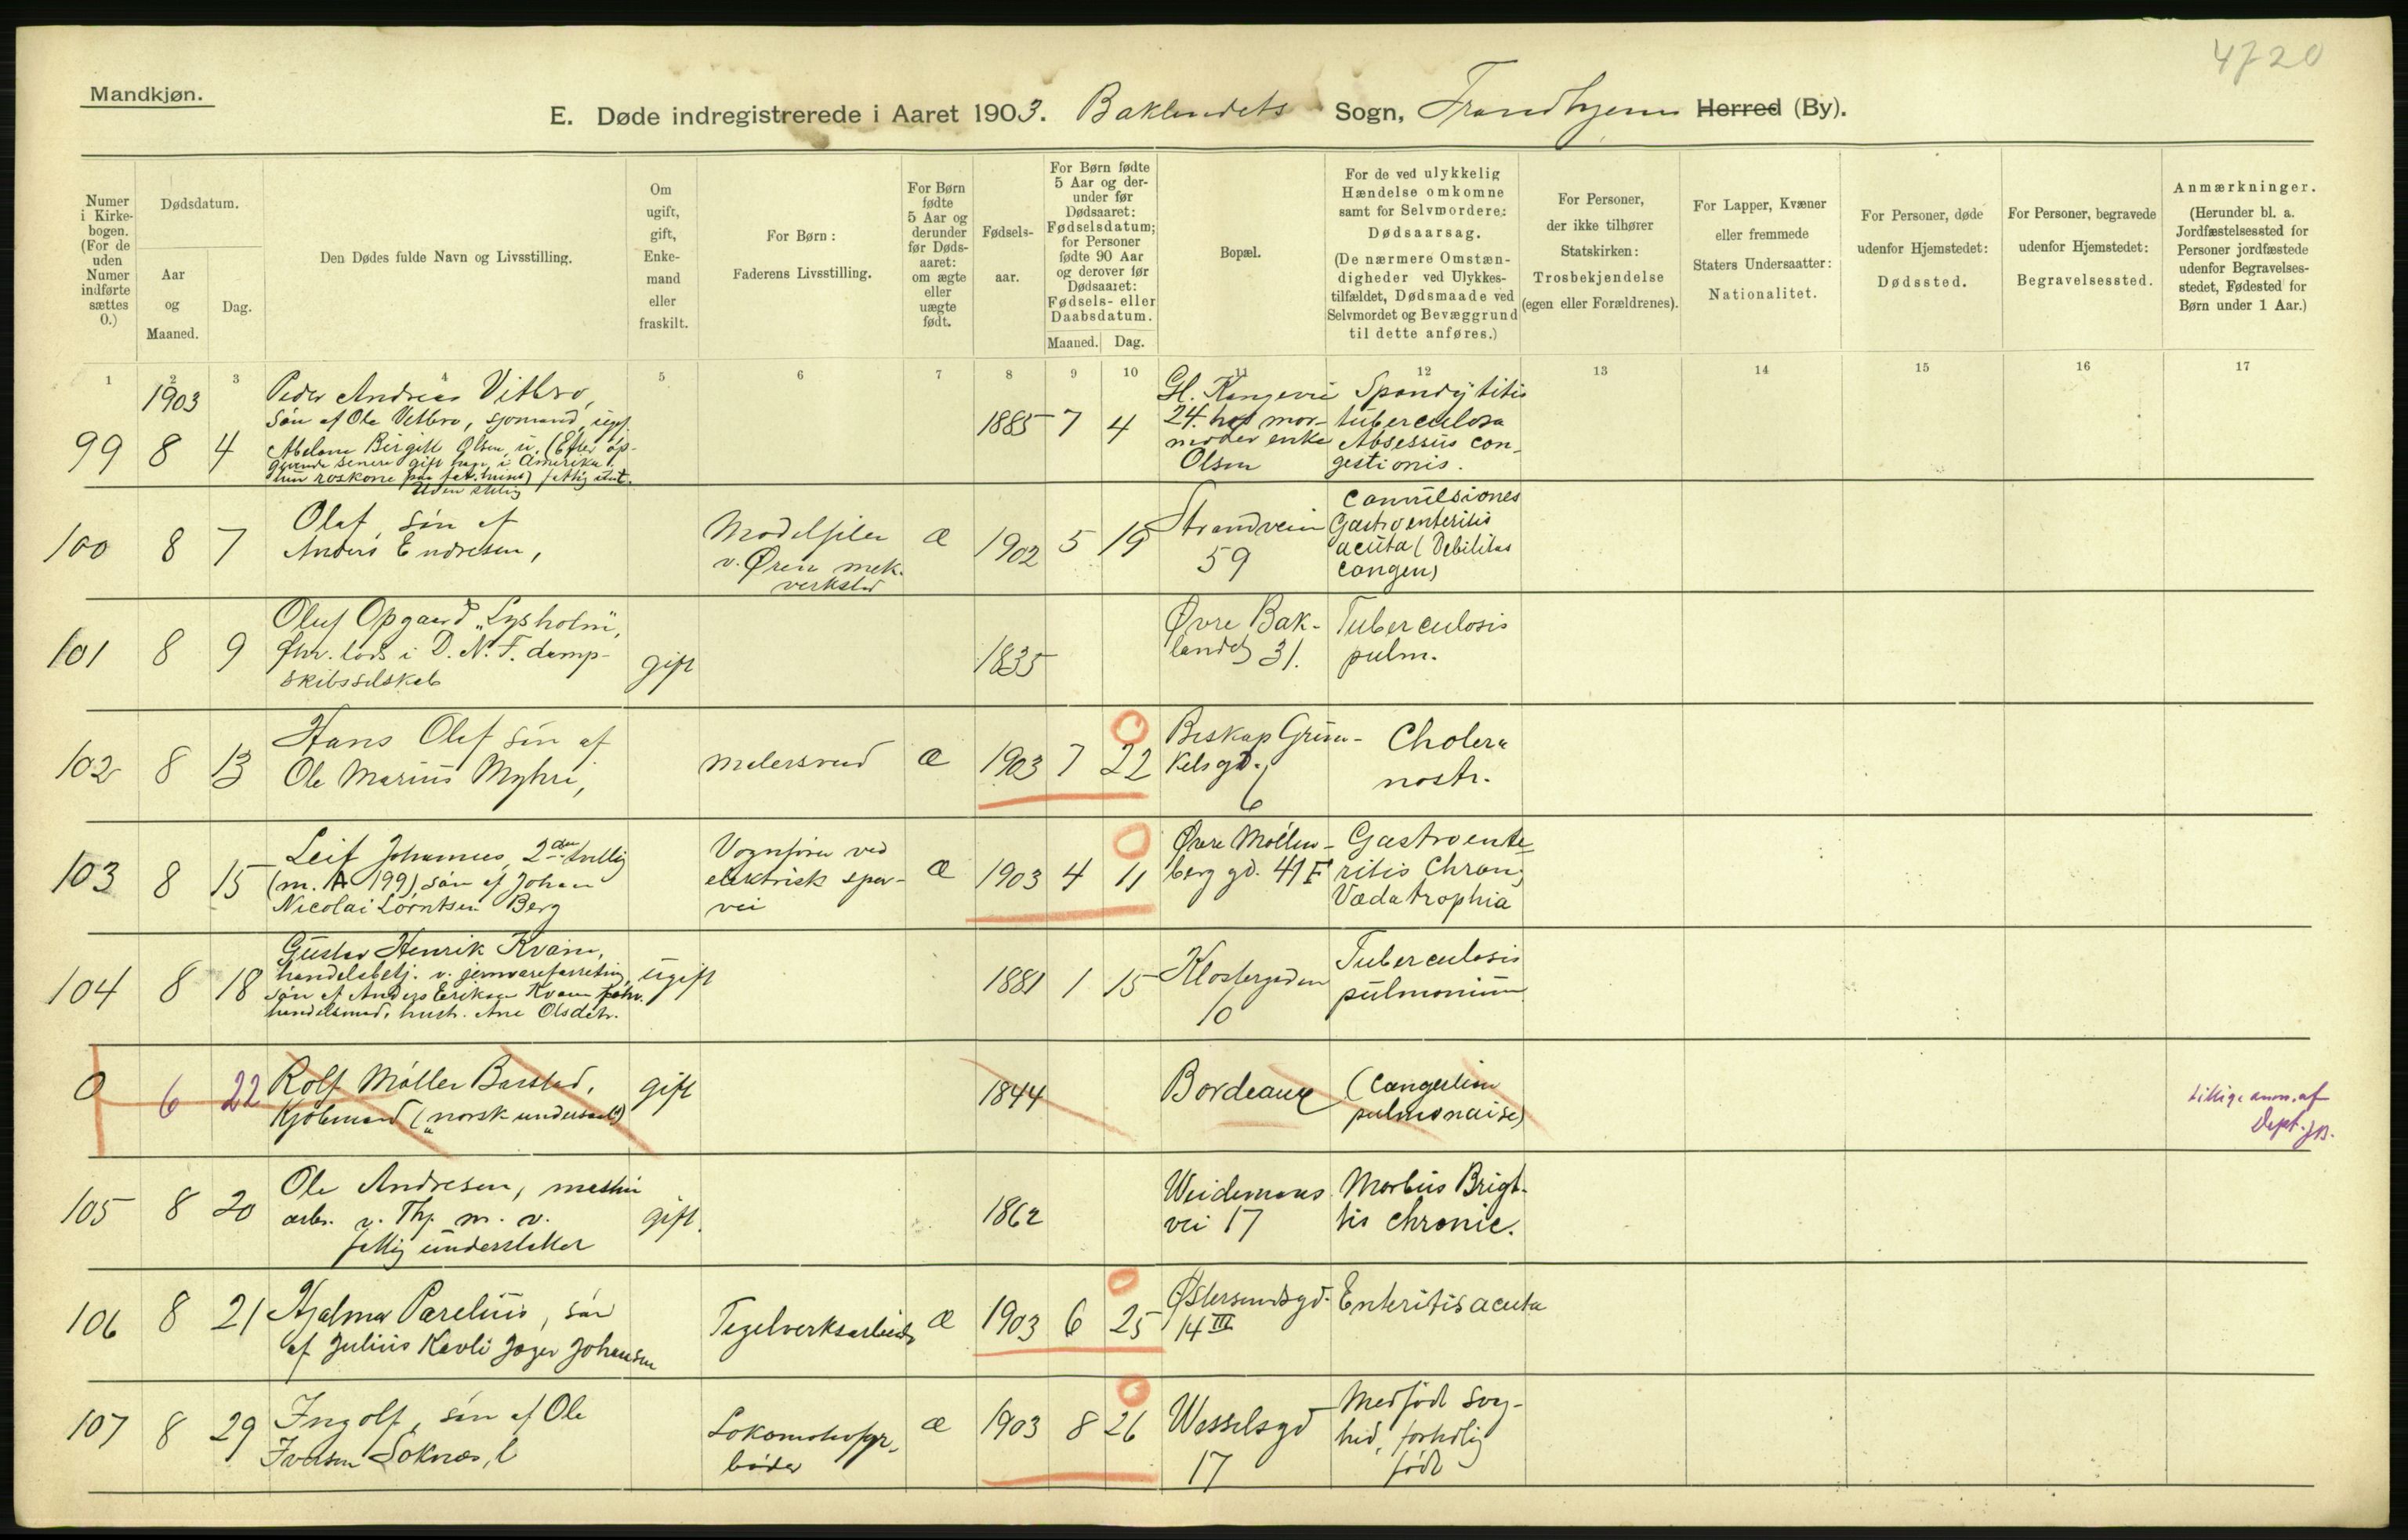 4720
Mandkjøn.
E. Døde indregistrerede i Aaret 1903. Baklandets Sogn, Trondhjem Herred (By).
Numer i Kirkebogen. (For de uden Numer indførte sættes 0.)
Dødsdatum.
Aar og Maaned.
Dag.
Den Dødes fulde Navn og Livsstilling.
Om ugift, gift, Enkemand eller fraskilt.
For Børn:
Faderens Livsstilling.
For Børn fødte 5 Aar og derunder før Dødsaaret: om ægte eller uægte født.
Fødselsaar.
For Børn fødte 5 Aar og derunder før Dødsaaret: Fødselsdatum; for Personer fødte 90 Aar og derover før Dødsaaret: Fødsels- eller Daabsdatum.
Maaned. Dag.
Bopæl.
For de ved ulykkelig Hændelse omkomne samt for Selvmordere: Dødsaarsag.
(De nærmere Omstændigheder ved Ulykkestilfældet, Dødsmaade ved Selvmordet og Bevæggrund til dette anføres.)
For Personer, der ikke tilhører Statskirken: Trosbekjendelse (egen eller Forældrenes).
For Lapper, Kvæner eller fremmede Staters Undersaatter: Nationalitet.
For Personer, døde udenfor Hjemstedet: Dødssted.
For Personer, begravede udenfor Hjemstedet: Begravelsessted.
Anmærkninger.
(Herunder bl. a. Jordfæstelsessted for Personer jordfæstede udenfor Begravelsesstedet, Fødested for Børn under 1 Aar.)
1 2 3 4 5 6 7 8 9 10 11 12 13 14 15 16 17
1903
99 8 4
Peder Andreas Vitbro,
søn af Ole Vitbro, sjømand, ugf.
Abelone Birgitt Olsen, u. (Efter op-
givende senere gift i Amerika
fattig und.
1885 7 4
Gl. Kongevei
24. hos mor-
moder enke
Olsen
Spondylitis
tuberculosa
Absessus con-
gestionis.
100 8 7
Olaf, søn af
Anders Endresen,
Modelfiler
v. Øren mek.
verksted
æ 1902 5 19
Strandvein
59
Convulsiones
Gastroenteritis
acuta (Debilitas
congen)
101 8 9
Oluf Opgaard "Lysholm",
fhv. lods i D. N. F. damp-
skibsselskab
gift
1835
Øvre Bak-
landet 31.
Tuberculosis
pulm.
102 8 13
Hans Olaf søn af
Ole Marius Myhre,
malersvend
æ 1903 7 22
Biskop Grim-
kelsgd.
6
Cholera
nostr.
103 8 15
Leif Johannes, 2den tvillig
(m. A 199), søn af Johan
Nicolai Lorntsen Berg
Vognfører ved
elektrisk spor-
vei
æ 1903 4 11
Øvre Møllen-
berg gd. 41 F
Gastroente-
ritis Chron;
Pædatrophia
104 8 18
Gustav Henrik Kvam,
handelsbetj. v. jernvareforretning,
søn af Anders Eriksen Kvam fhv.
handelsmand, hustr. Ane Olsdtr.
ugift
1881 1 15
Klostergaden
10
Tuberculosis
pulmonium
0 6 22
Rolf Møller Barstad,
Kjøbmand ("norsk undersaat")
gift
1844
Bordeaux
(Congestion
pulmonaise)
tillige anm. af
Dept. JB.
105 8 20
Ole Andresen, maskin
arb. v. Thj. m. v.
fattig understøttet
gift.
1862
Weidemans
vei 17
Morbus Brigh-
tis chronic.
106 8 21
Hjalmar Parelius, søn
af Julius Kavli Jager Johansen
Tegelverksarbeider
æ 1903 6 25
Østersundsgd.
14 III
Enteritis acuta
107 8 29
Ingolf, søn af Ole
Iversen Soknæs,
Lokomotivfyr-
bøder
æ 1903 8 26
Wesselsgd
17
Medfødt svag-
hed, fortidlig
født